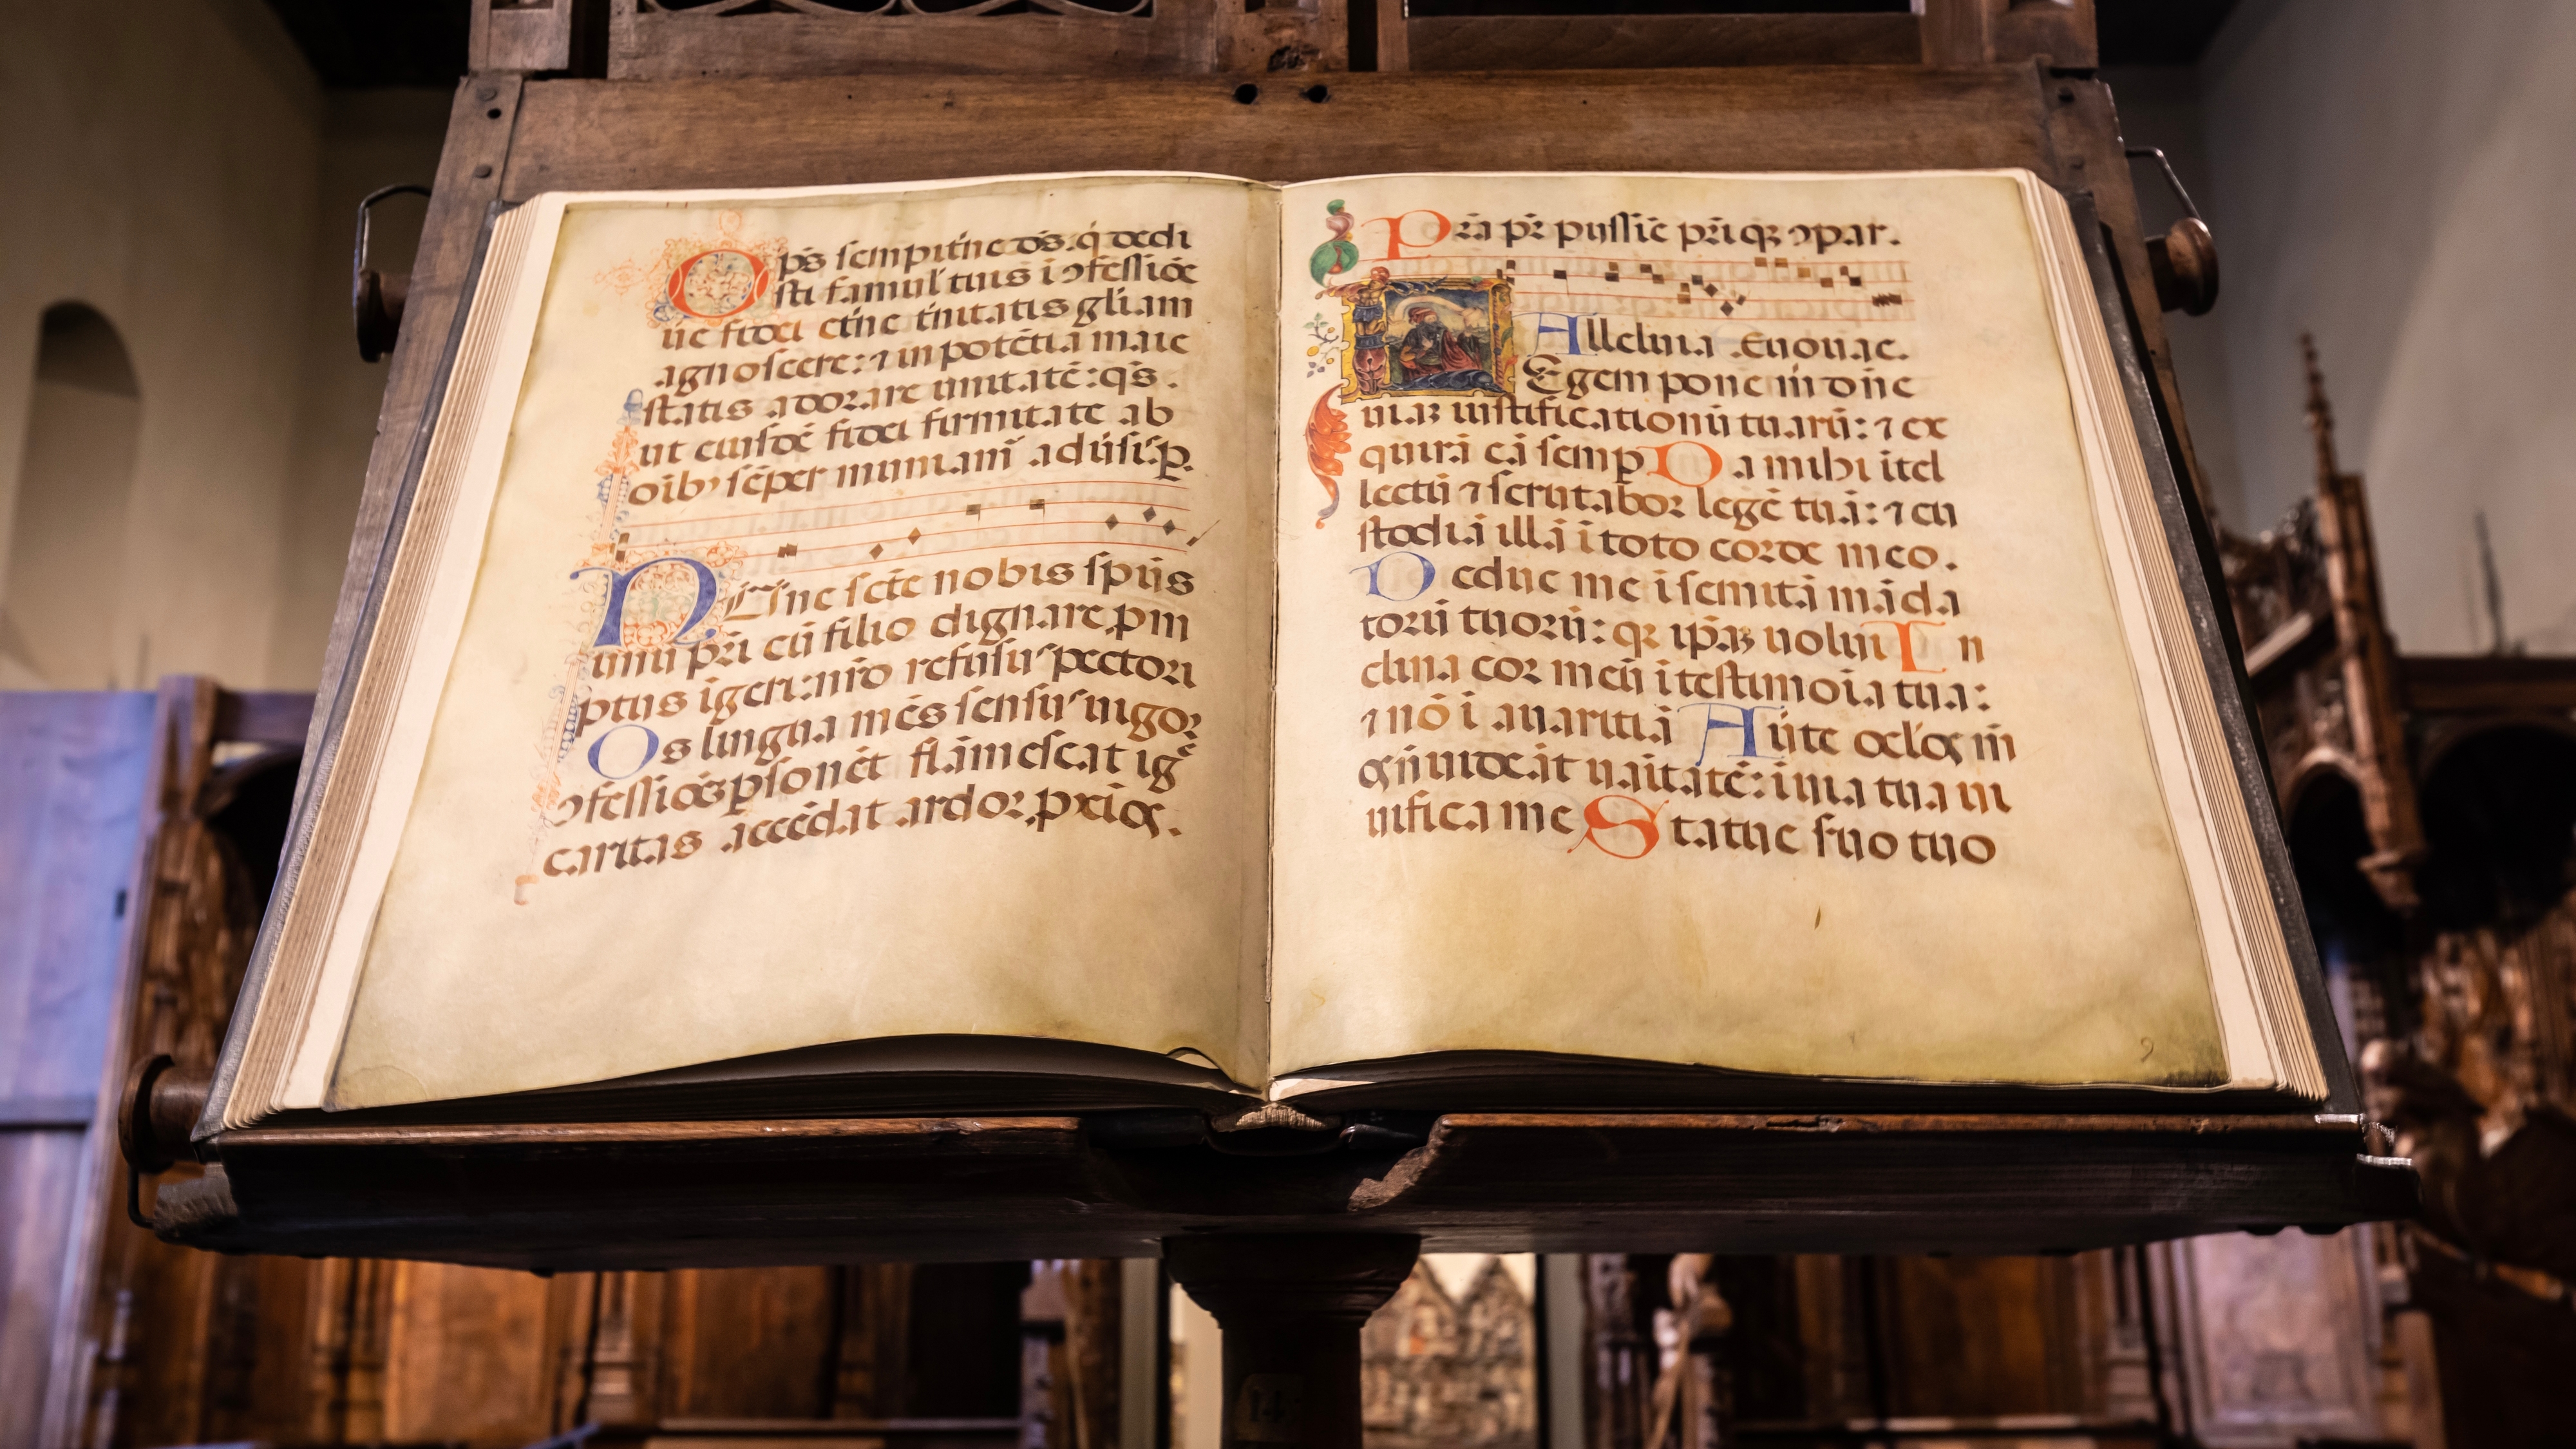 Op̄s sempit̄ne d̄s. q̇ dedi
sti famul̄ tuis i ɔfessiōe
ūe fidei et̄ne t̄nitatis gl̄iam
agnoscere: ⁊ in potētia maie
statis adorare unitatē: q̄s.
ut eiusdē fidei firmitate ab
oīb' sēper muniam̄ adūsis.
Nūnc scē̄ nobis sp̄us
unū pr̄i cū filio dignare
ptus igeri: nr̄o refusus pectori
Os lingua mēs sensus uigor
ɔfessiōēs psonēt flāmescat igē
caritas accēdat ardor
Pr̄a pr̄ pijssiē pr̄i qꝫ ɔpar.
Alleluia . Euouae.
Legem pone m̄ dn̄e
uiaꝫ iustificationū tuarū: ⁊ ex
quirā eā semp Da mihi itel
lectū ⁊ scrutabor legē tuā: ⁊ cu
stodiā illā i toto corde meo.
Deduc me i semitā māda
torū tuorū: qꝫ ip̄aꝫ uolui In
clina cor meū i testimoīa tua:
⁊ nō i auaritiā Aūte oc̄l̄os m̄
os n̄ uideāt uaītatē: i uia tua ui
uifica me Statue s̄uo tuo
2